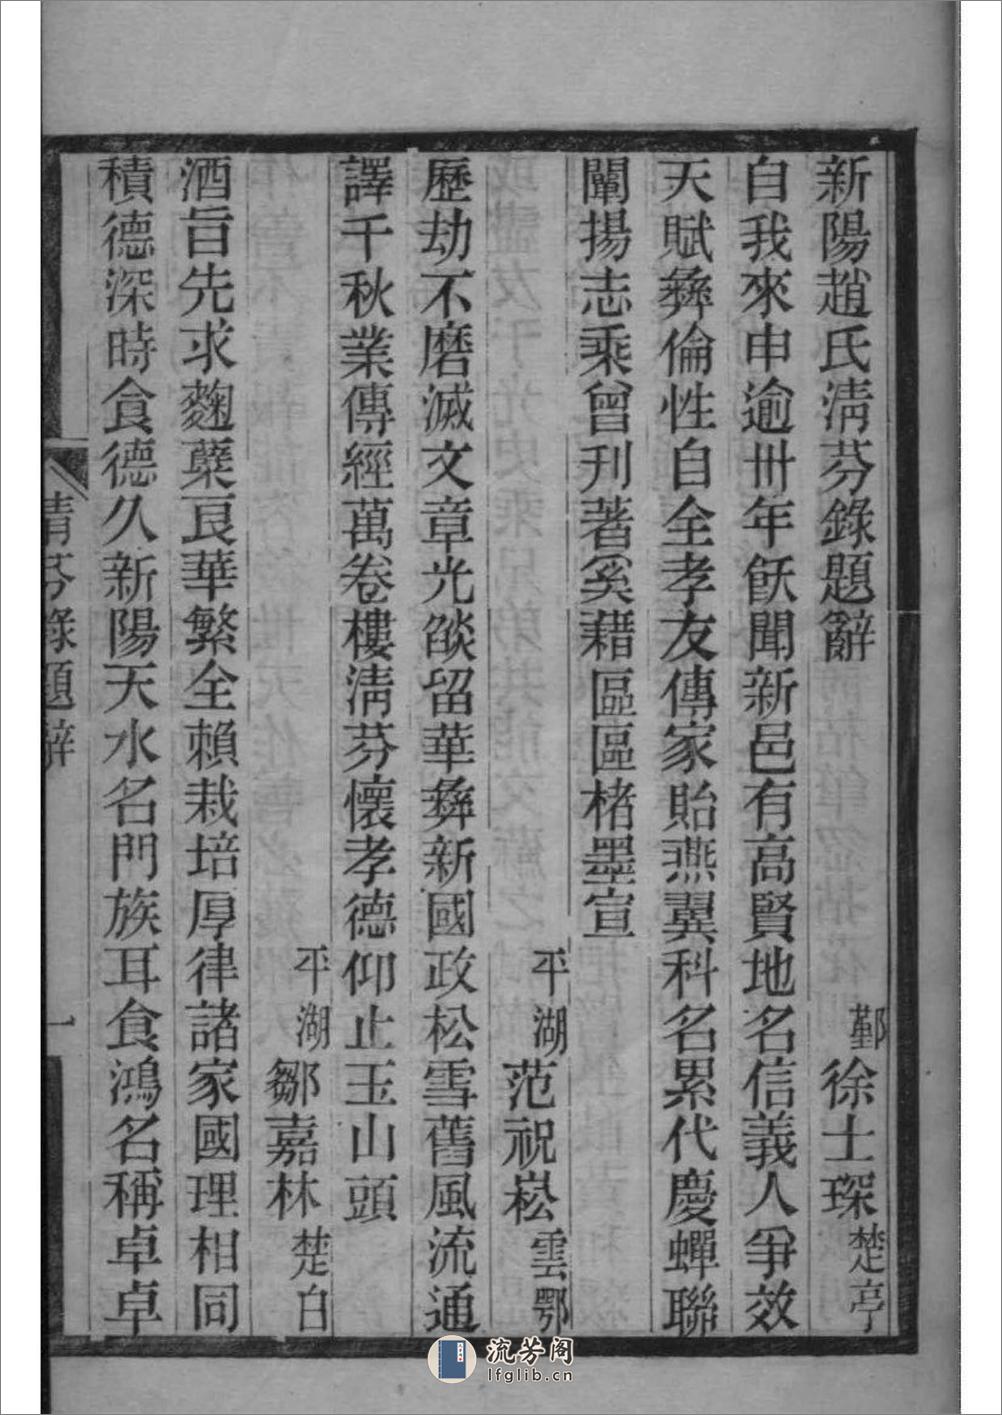 新陽趙氏淸芬錄題辭 鄞 徐士琛 楚亭
自我來申逾卅年飫聞新邑有高賢地名信義人爭效
天賦彝倫性自全孝友傳家貽燕翼科名累代慶蟬聯
闡揚志乘曾刋著奚藉區區楮墨宣
平湖 范祝崧 雲鄂
歷劫不磨滅文章光燄留華彝新國政松雪舊風流通
譯千秋業傳經萬卷樓淸芬懷孝德仰止玉山頭
平湖 鄒嘉林 楚白
酒旨先求麴糵良華繁全賴栽培厚律諸家國理相同
積德深時食德久新陽天水名門族耳食鴻名稱卓卓
清芬錄題辭 一
流芳阁
lfglib.cn